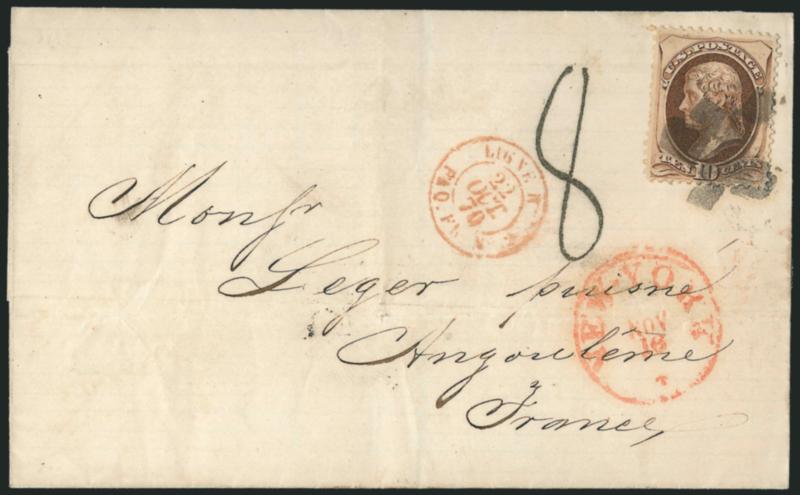 U.S. POSTAGE
TEN 10 CENTS
8
LIGNE
22
OCT.
70
PAQ. FR.
NEW YORK
NOV
Monsr
Leger puisné
Angoulême
France,